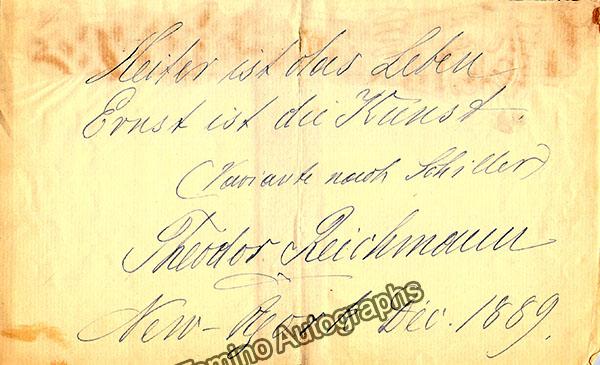 Heiter ist das Leben
Ernst ist die Kunst.
(Variante nach Schiller)
Theodor Reichmann
New-York Dec. 1889.
Tamino Autographs